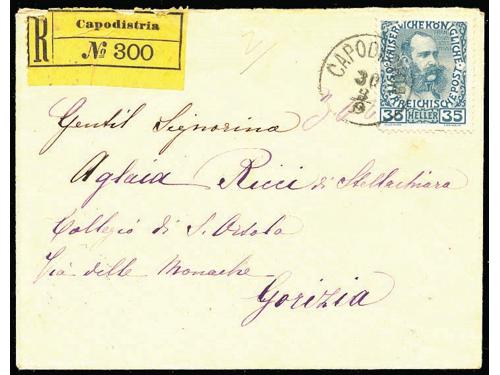 R
Capodistria
№ 300
KAISERLICHE KÖNIGLICHE
POST
ÖSTERREICHISCHE
35 HELLER 35
CAPOD
Gentil Signorina
Aglaia Ricci di Stellachiara
Collegio di S. Orsola
Via delle Monache
Gorizia